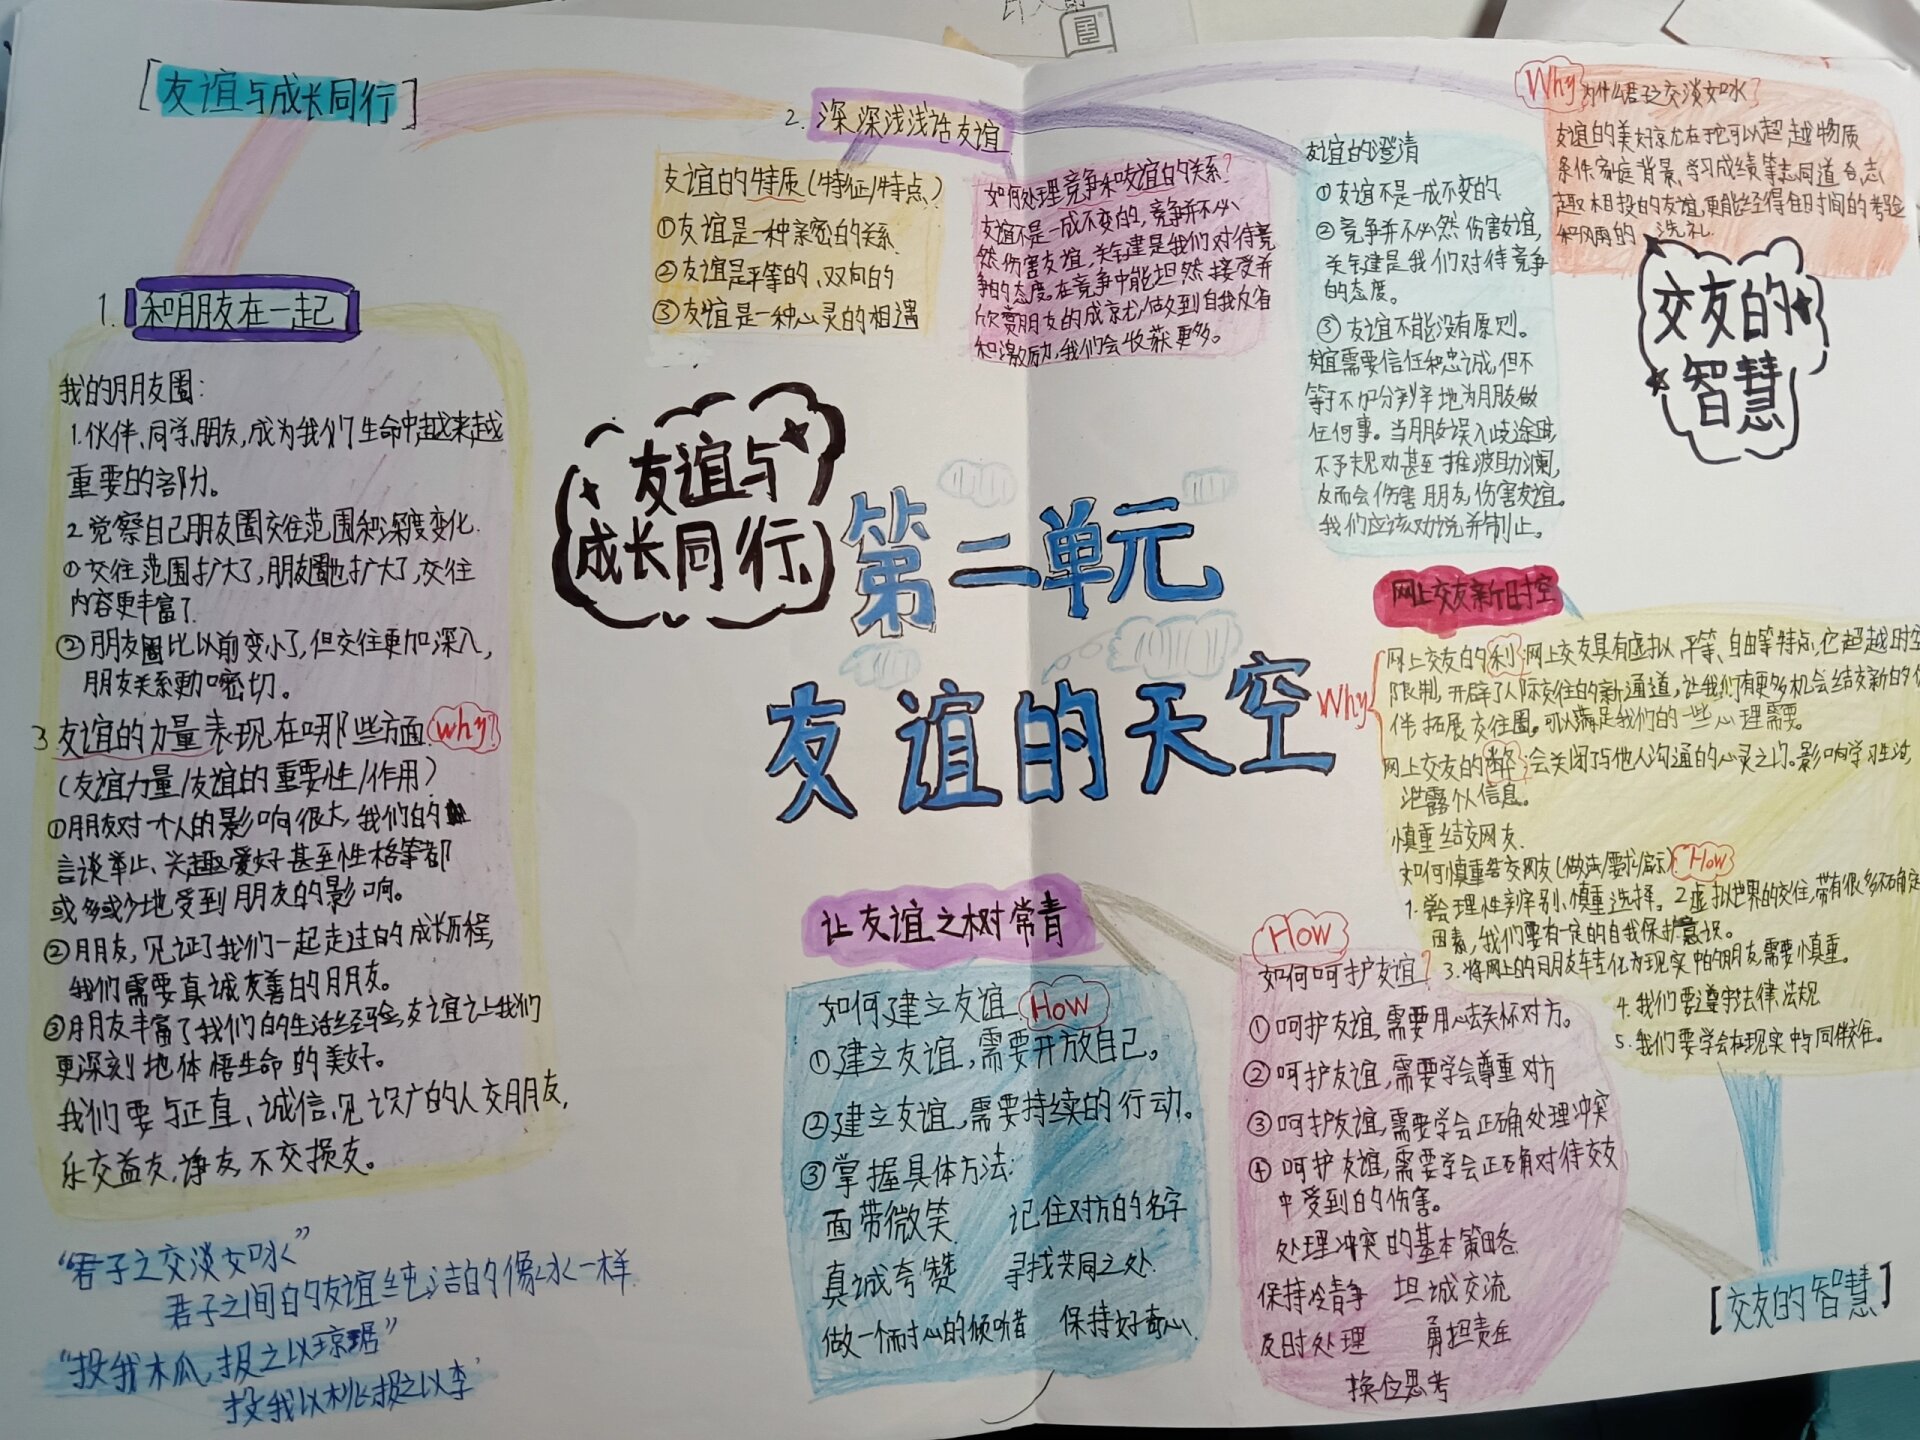 [友谊与成长同行]
1. 和朋友在一起
我的朋友圈:
1.伙伴、同学、朋友,成为我们生命中越来越
重要的部分。
2.觉察自己朋友圈交往范围和深度变化.
①交往范围扩大了,朋友圈也扩大了,交往
内容更丰富了.
②朋友圈比以前变小了,但交往更加深入,
朋友关系更加密切。
3.友谊的力量表现在哪些方面 Why?
(友谊力量/友谊的重要性/作用)
①朋友对一个人的影响很大,我们的
言谈举止、兴趣爱好甚至性格等都
或多或少地受到朋友的影响。
②朋友,见证了我们一起走过的成长历程,
我们需要真诚友善的朋友。
③朋友丰富了我们的生活经验,友谊让我们
更深刻地体悟生命的美好。
我们要与正直、诚信、见识广的人交朋友,
乐交益友,诤友,不交损友。
“君子之交淡如水”
君子之间的友谊纯洁的像水一样.
“投我木瓜,报之以琼琚”
投我以桃,报之以李
2. 深深浅浅话友谊
友谊的特质(特征/特点)
①友谊是一种亲密的关系
②友谊是平等的、双向的
③友谊是一种心灵的相遇
如何处理竞争和友谊的关系?
友谊不是一成不变的,竞争并不必
然伤害友谊,关键是我们对待竞
争的态度。在竞争中能坦然接受并
欣赏朋友的成就,做到自我反省
和激励,我们会收获更多。
友谊的澄清
①友谊不是一成不变的
②竞争并不必然伤害友谊,
关键是我们对待竞争
的态度。
③友谊不能没有原则。
友谊需要信任和忠诚,但不
等于不加分辨地为朋友做
任何事。当朋友误入歧途,
不予规劝甚至推波助澜,
反而会伤害朋友,伤害友谊。
我们应该劝说并制止。
Why 为什么君子之交淡如水?
友谊的美好就在于它可以超越物质
条件、家庭背景、学习成绩等,志同道合、志
趣相投的友谊,更能经得住时间的考验
和风雨的洗礼.
交友的
智慧
友谊与
成长同行
第二单元
友谊的天空
网上交友新时空
Why
网上交友的利:网上交友具有虚拟、平等、自由等特点,它超越时空
限制,开辟了人际交往的新通道,让我们有更多机会结交新的伙
伴拓展交往圈。可以满足我们的一些心理需要。
网上交友的弊:会关闭了与他人沟通的心灵之门。影响学习生活,
泄露个人信息。
慎重结交网友.
如何慎重结交网友(做法/要求/启示) How
1.学会理性辨别、慎重选择。2虚拟世界的交往,带有很多不确定
因素,我们要有一定的自我保护意识。
3.将网上的朋友转化为现实中的朋友,需要慎重。
4.我们要遵守法律法规
5.我们要学会在现实中与同伴交往。
让友谊之树常青
如何建立友谊 How
①建立友谊,需要开放自己。
②建立友谊,需要持续的行动。
③掌握具体方法:
面带微笑 记住对方的名字
真诚夸赞 寻找共同之处.
做一个耐心的倾听者 保持好奇心.
How
如何呵护友谊?
①呵护友谊,需要用心去关怀对方。
②呵护友谊,需要学会尊重对方
③呵护友谊,需要学会正确处理冲突
④呵护友谊,需要学会正确对待交友
中受到的伤害。
处理冲突的基本策略
保持冷静 坦诚交流
及时处理 勇担责任
换位思考
[交友的智慧]